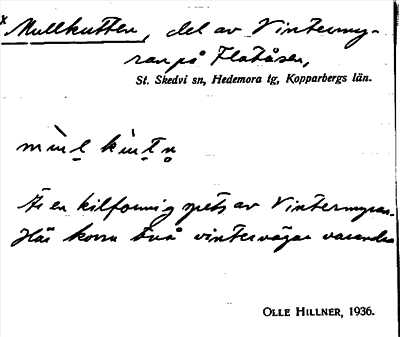 x Mullkutten, del av Vintermy-
ran på Flatåsen,
St. Skedvi sn, Hedemora tg, Kopparbergs län.
Är en kilformig spets av Vintermyran.
Här korsa två vintervägar varandra
OLLE HILLNER, 1936.